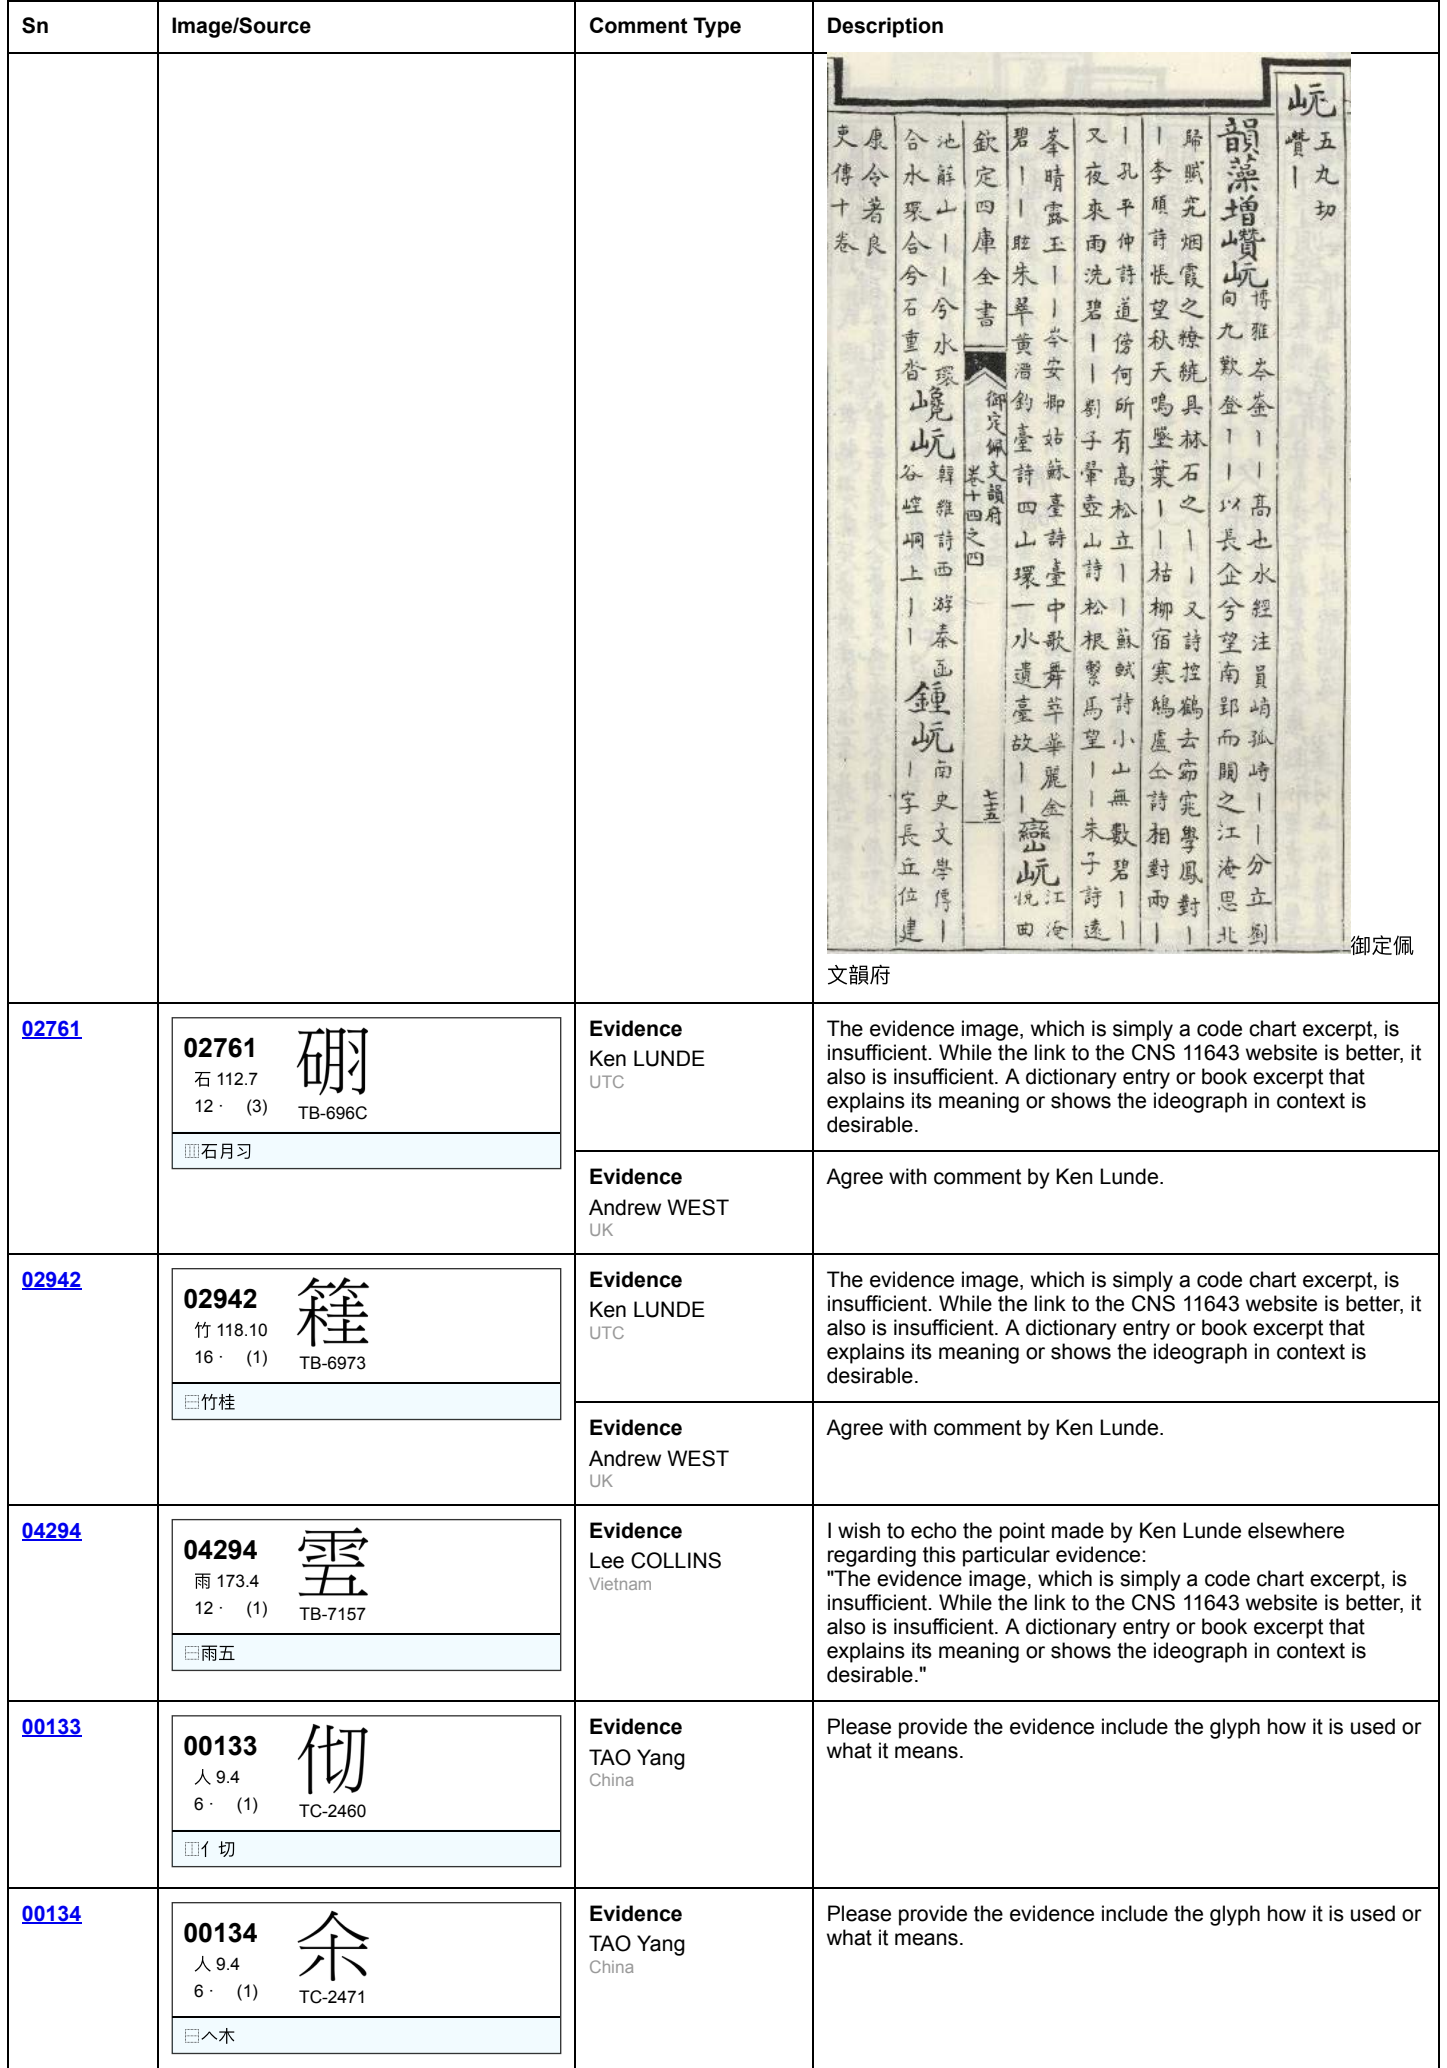 Sn Image/Source Comment Type Description
岏
五丸切
巑丨
韻藻增巑岏
博雅岑崟丨丨高也水經注員嶠孤峙丨丨分立劉
向九歎登丨丨以長企兮望南郢而闚之江淹思北
歸賦究烟霞之繚繞具林石之丨丨又詩控鶴去窈窕學鳳對丨
丨李頎詩悵望秋天鳴墜葉丨丨枯柳宿寒鴟盧仝詩相對兩丨
丨孔平仲詩道傍何所有高松立丨丨蘇軾詩小山無數碧丨丨
又夜來雨洗碧丨丨劉子翬壺山詩松根繫馬望丨丨朱子詩遠
峯晴露玉丨丨岑安卿姑蘇臺詩臺中歌舞萃華麗金
碧丨丨眩朱翠黃溍釣臺詩四山環一水遺臺故丨丨
巒岏
江淹
悅曲
欽定四庫全書
御定佩文韻府
卷十四之四
七十五
池辭山丨丨兮水環
合水環合兮石重沓
巉岏
韓維詩西游秦函
谷崆峒上丨丨
鍾岏
南史文學傳丨
丨字長丘位建
康令著良
吏傳十卷
御定佩
文韻府
02761
02761
石 112.7
12 · (3)
硼
TB-696C
⿲石月习
Evidence
Ken LUNDE
UTC
The evidence image, which is simply a code chart excerpt, is
insufficient. While the link to the CNS 11643 website is better, it
also is insufficient. A dictionary entry or book excerpt that
explains its meaning or shows the ideograph in context is
desirable.
Evidence
Andrew WEST
UK
Agree with comment by Ken Lunde.
02942
02942
竹 118.10
16 · (1)
TB-6973
⿱竹桂
Evidence
Ken LUNDE
UTC
The evidence image, which is simply a code chart excerpt, is
insufficient. While the link to the CNS 11643 website is better, it
also is insufficient. A dictionary entry or book excerpt that
explains its meaning or shows the ideograph in context is
desirable.
Evidence
Andrew WEST
UK
Agree with comment by Ken Lunde.
04294
04294
雨 173.4
12 · (1)
TB-7157
⿱雨五
Evidence
Lee COLLINS
Vietnam
I wish to echo the point made by Ken Lunde elsewhere
regarding this particular evidence:
"The evidence image, which is simply a code chart excerpt, is
insufficient. While the link to the CNS 11643 website is better, it
also is insufficient. A dictionary entry or book excerpt that
explains its meaning or shows the ideograph in context is
desirable."
00133
00133
人 9.4
6 · (1)
TC-2460
⿰亻切
Evidence
TAO Yang
China
Please provide the evidence include the glyph how it is used or
what it means.
00134
00134
人 9.4
6 · (1)
TC-2471
⿱𠆢木
Evidence
TAO Yang
China
Please provide the evidence include the glyph how it is used or
what it means.